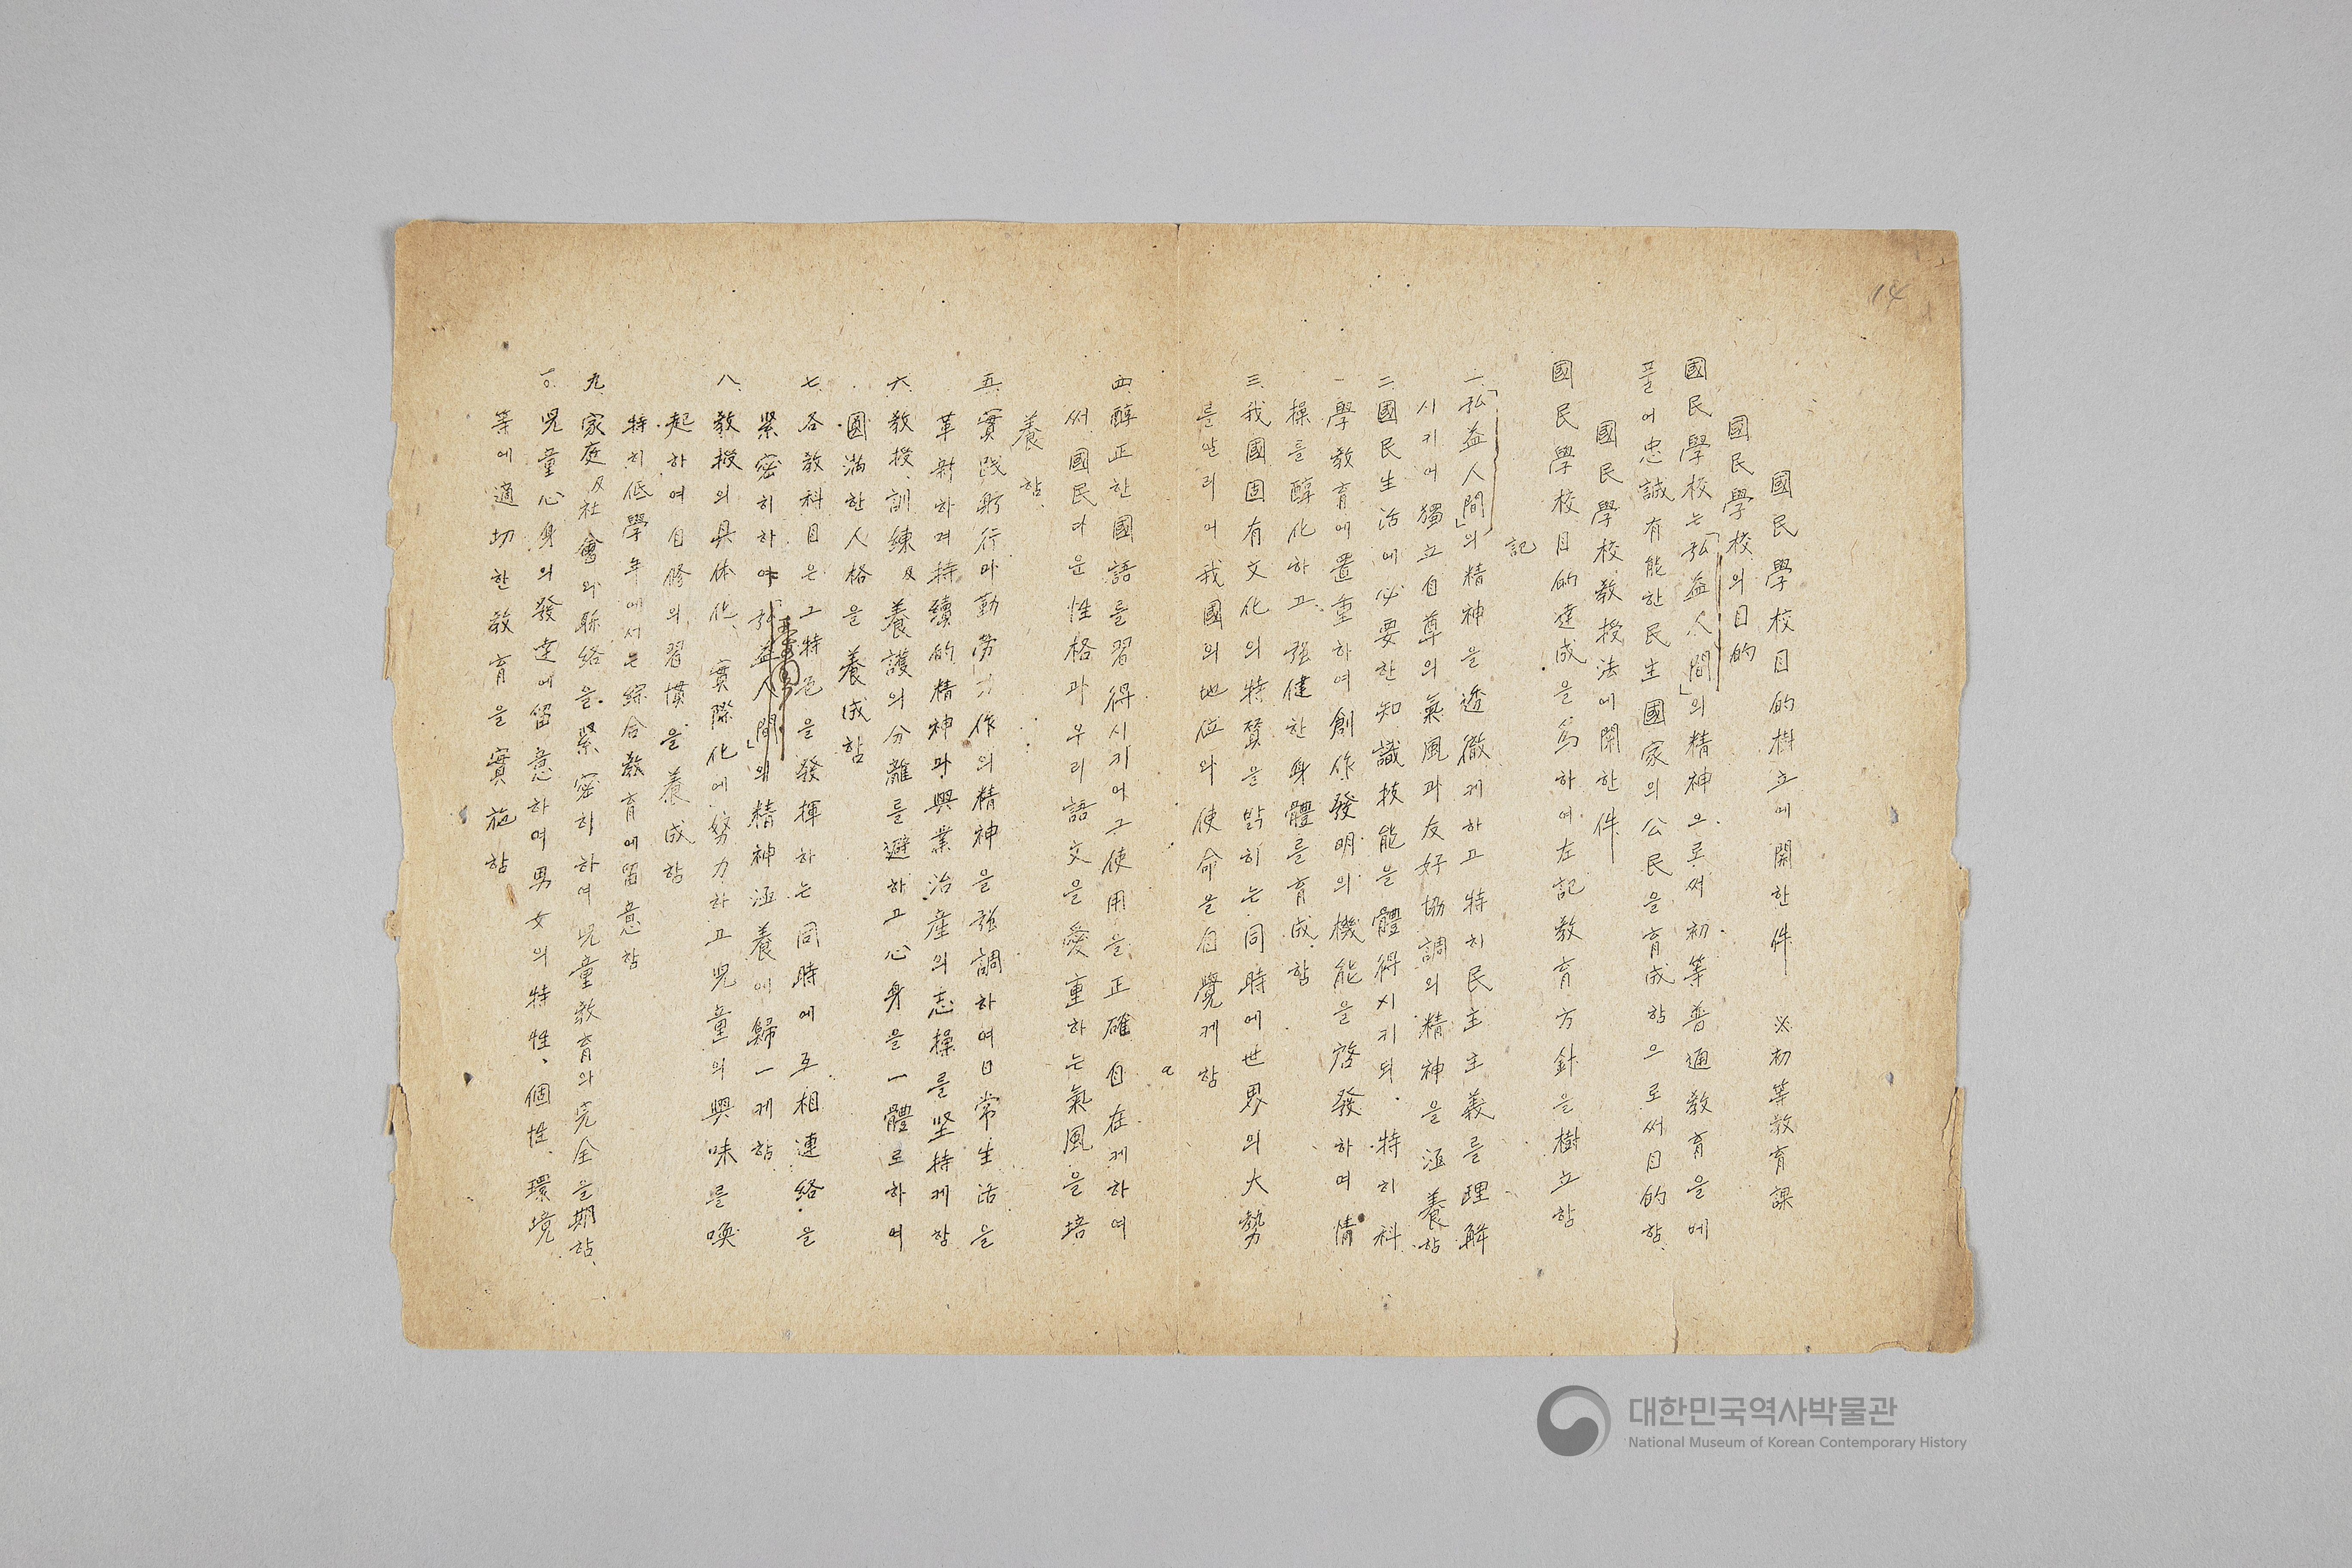 14
國民學校目的樹立에關한件 ※初等教育課
國民學校의目的
國民學校는「弘益人間」의精神으로써初等普通教育을에
풀어忠誠有能한民主國家의公民을育成함으로써目的함.
國民學校教授法에関한件
國民學校目的達成을爲하여左記教育方針을樹立함
記
一.「弘益人間」의精神을透徹케하고特히民主主義를理解
시키어獨立自尊의氣風과友好協調의精神을涵養함
二.國民生活에必要한知識技能을體得시키되.特히科
學教育에置重하여創作發明의機能을啓發하며情
操를醇化하고.強健한身體를育成함
三.我國固有文化의特質을밝히는同時에世界의大勢
를알리어我國의地位와使命을自覺케함
四.醇正한國語를習得시키어그使用을正確自在케하여
써國民다운性格과우리語文을愛重하는氣風을培
養함.
五.實踐躬行과勤勞力作의精神을強調하여日常生活을
革新하며持續的精神과興業治産의志操를坚持케함
六.教授、訓練及養護의分離를避하고心身을一體로하여
圓滿한人格을養成함
七.各教科目은그特色을發揮하는同時에互相連絡을
緊密히하야「弘益人間」의精神涵養에歸一케함
八.教授의具体化、實際化에努力하고兒童의興味를喚
起하여自修의習慣을養成함
特히低學年에서는綜合教育에留意함
九.家庭及社會와聯絡을緊密히하여兒童教育의完全을期함.
一○.兒童心身의發達에留意하여男女의特性、個性、環境
等에適切한教育을實施함
대한민국역사박물관
National Museum of Korean Contemporary History